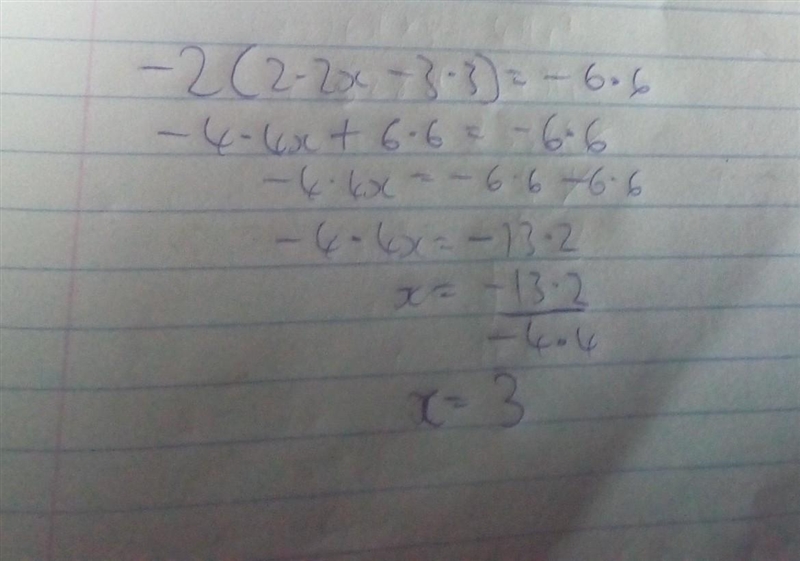 -2(2·2x - 3·3) = -6·6
-4·4x + 6·6 = -6·6
-4·4x = -6·6 -6·6
-4·4x = -13·2
x = -13·2
-4·4
x = 3